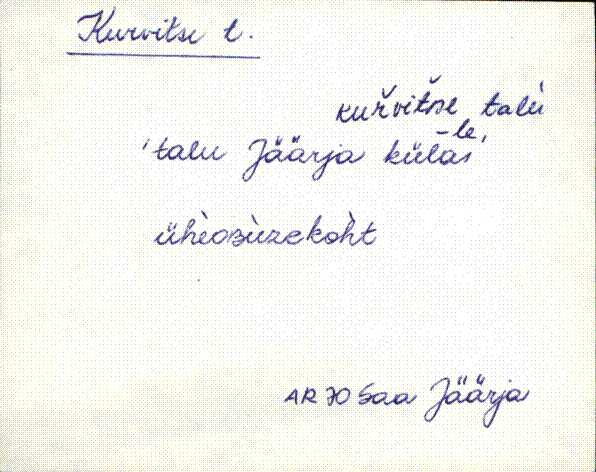 Kurvitse t.
kuřvitše talu
-le
'talu Jäärja külas'
üheosuzekoht
AR 70 Saa Jäärja